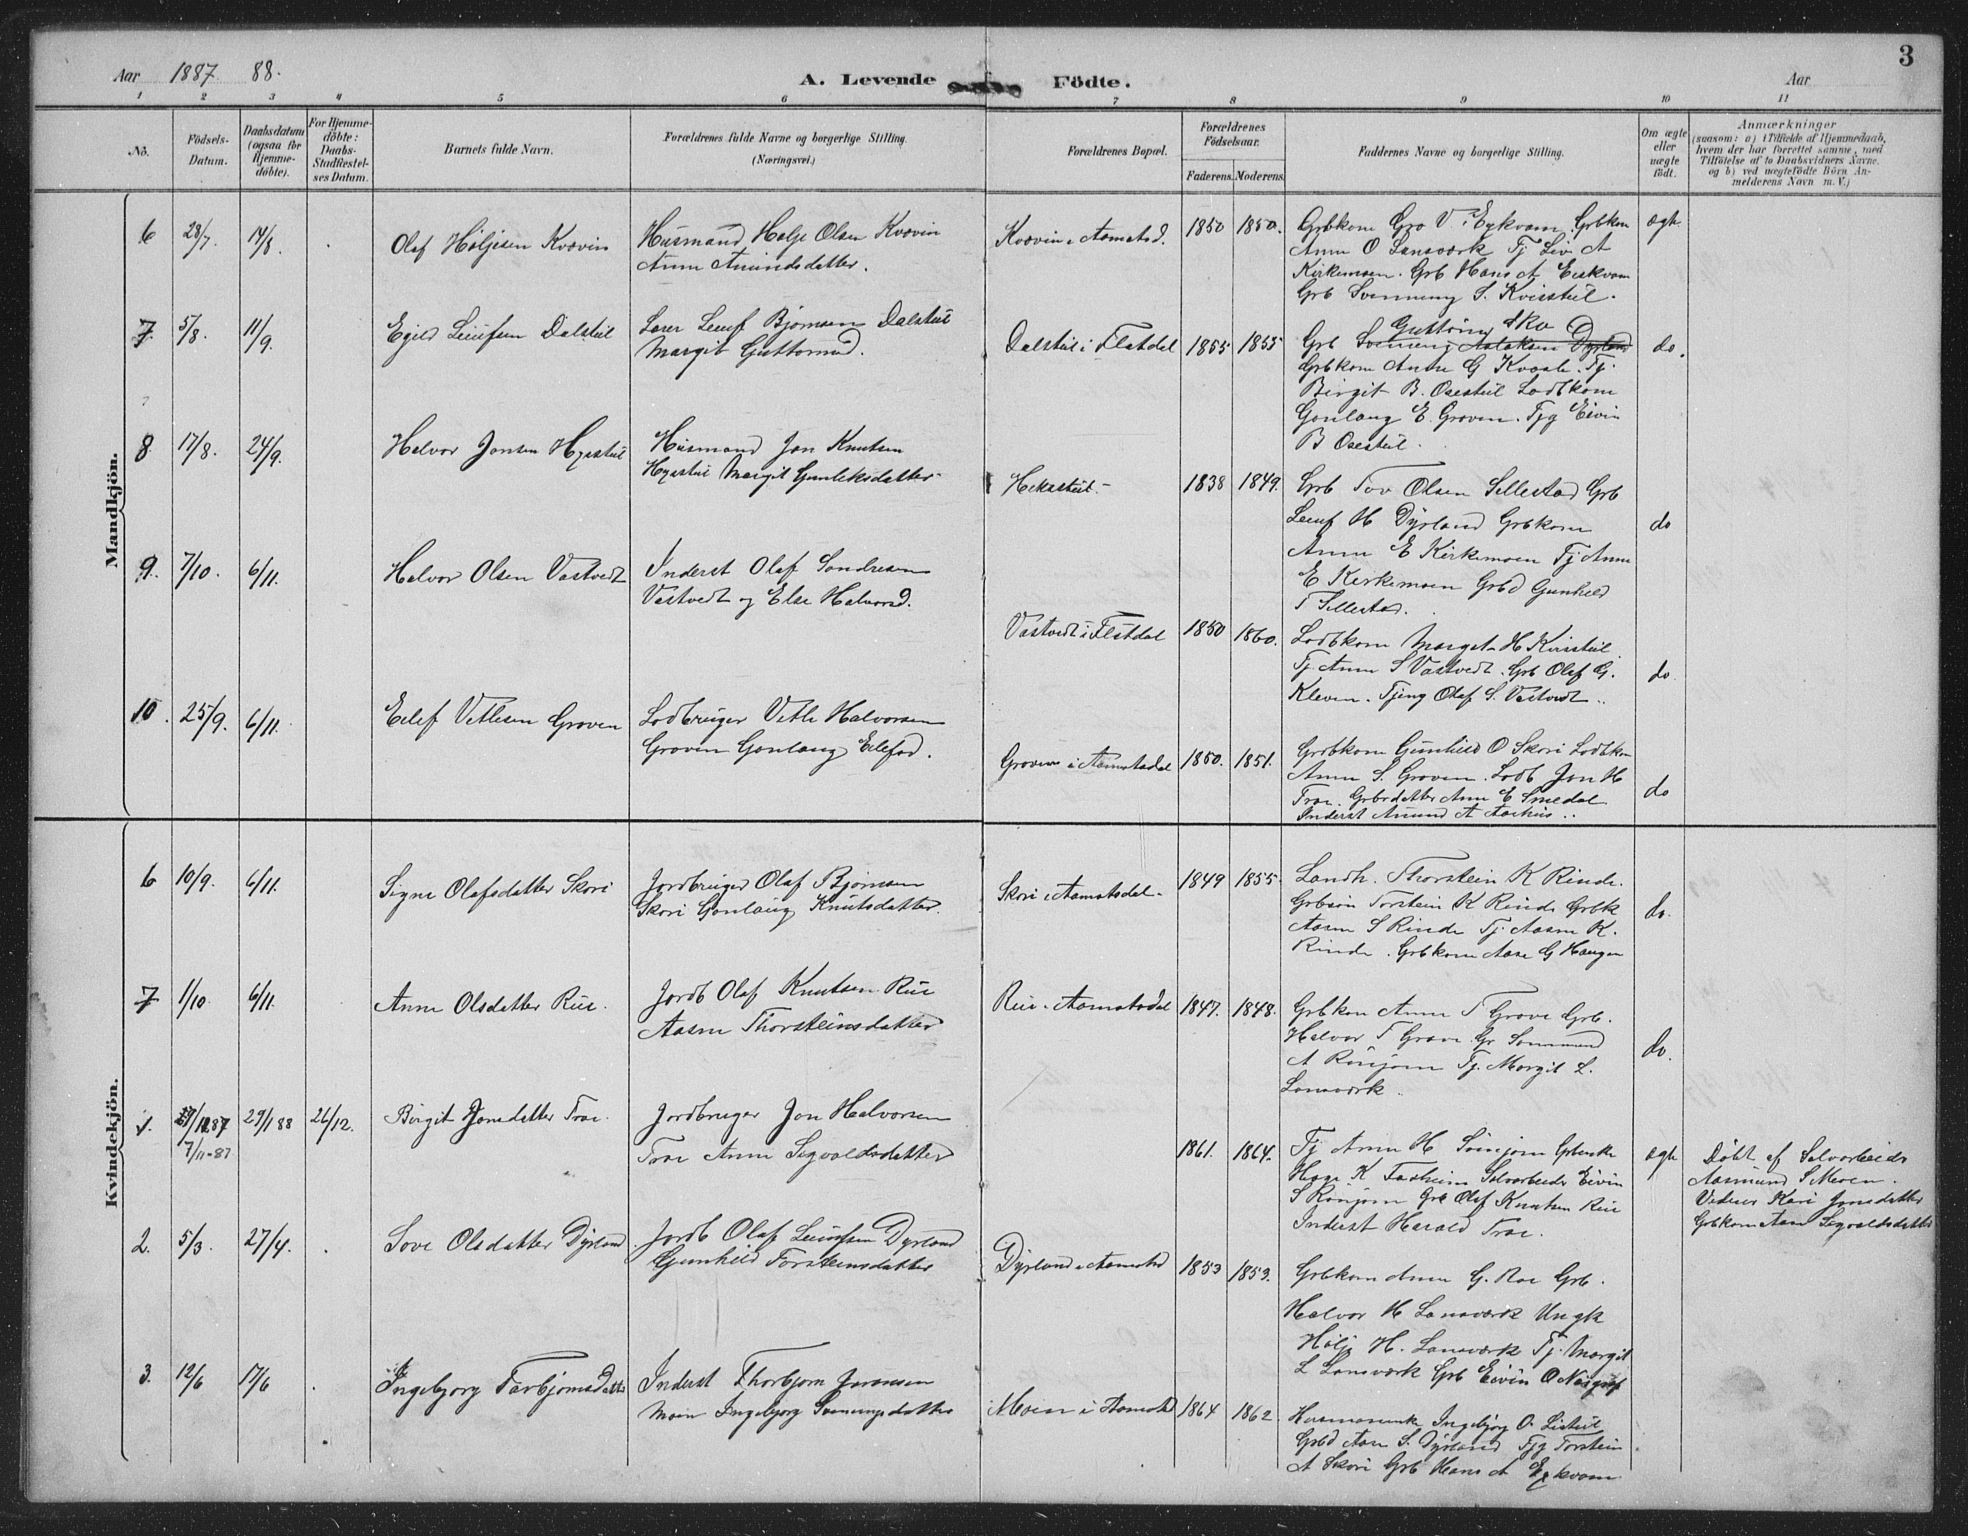 3
Aar 1887 88.
A. Levende Födte.
Aar
1 2 3 4 5 6 7 8 9 10 11
No.
Födsels-Datum.
Daabsdatum (ogsaa för Hjemme-döbte).
For Hjemme-döbte: Daabs-Stadfæstel-ses Datum.
Barnets fulde Navn.
Forældrenes fulde Navne og borgerlige Stilling. (Næringsvei.)
Forældrenes Bopæl.
Forældrenes Födselsaar.
Faderens. Moderens.
Faddernes Navne og borgerlige Stilling.
Om ægte eller uægte födt.
Anmærkninger
(saasom: a) i Tilfælde af Hjemmedaab, hvem der har forrettet samme, med Tilföielse af to Daabsvidners Navne, og b) ved uægtefödte Börn An-melderens Navn m. V.)
Mandkjön.
6 23/7 14/8 Olaf Höljesen Kvævin
Husmand Holje Olsen Kvævin
Anne Amundsdatter.
Kvævin i Aamotsd. 1850 1850.
Grbkone Gro V. Eykvam Grbkon
Anne O Lansværk Tj Liv A
Kirkemoen. Grb Hans A Eeskvam
Grb Svenning S. Kvisstul.
ægte
7 5/8. 11/9 Egild Leiufsen Dalstiil
Lærer Leiuf Bjørnsen Dalstiil
Margit Guttormsd.
Dalstiil i Flatdal 1855 1855
Guttorm
Grb Svenning Aslaksen Dyrland
Grbkone Anne G Kvaale. Tj.
Birgit B. Osestiil Lodbkone
Gonlaug E. Groven. Tjg Eivin
B Osestiil.
do.
8. 17/8. 24/9. Halvor Jonsen Hysstiil
Husmand Jon Knutsen
Hysstiil Margit Gunleksdatter
1838 1849.
Grb Tov Olsen Sellestad Grb
Leiuf H Dyrland Grbkone
Anne E Kirkemoen Tj Anne
E Kirkemoen Grbd Gunhild
T Sellestad.
do
9. 7/10. 6/11. Halvor Olsen Vastvedt
Inderst Olaf Sondresen
Vastvedt og Else Halvorsd.
Vastvedt i Flatdal 1850 1860.
Lodbkone Margit H Kvisstiil
Tj. Anne S Vastvedt. Grb Olaf G.
Kleven. Tjeng Olaf S. Vastvedt.
do
10. 25/9. 6/11. Eilef Vetlesen Groven
Lodbruger Vetle Halvorsen
Groven Gonlaug Eilefsd.
Groven i Aamotsdal 1850. 1851.
Grbkone Gunhild O Skori Lodbkon
Anne S. Groven. Lodb Jon H
Troe. Grbrdatter Anne E Smedal
Inderst Amund A Aashus.
do
Kvindekjön.
6 10/9. 6/11. Signe Olafsdatter Skori
Jordbruger Olaf Bjørnsen
Skori Gonlaug Knutsdatter.
Skori i Aamotsdal 1849 1855.
Landh. Thorstein K Rinde.
Grbsøn Torstein K Rinde Grbk
Aasne S Rinde Tj. Aasne K.
Rinde. Grbkone Aase G Haugen
do.
7 1/10. 6/11. Anne Olsdatter Rue.
Jordb Olaf Knutsen Rue
Aasne Thorsteinsdatter
Rue i Aamotsdal 1847. 1848.
Grbkon Anne T Grove Grb.
Halvor T Grove Gr
A Rønjom Tj. Margit L.
Lansværk.
do.
1. 7/11-87 29/1 88 26/12. Birgit Jonsdatter Troe.
Jordbruger Jon Halvorsen
Troe Anne Sigvaldsdatter
1861. 1864.
Tj Anne H Sønjom
Hæge K Taskeim Selvarbeider Eivin
S Rønjom Grb Olaf Knutsen Rue
Inderst Harald Troe.
ægte
Døbt af Selvarbeider
Aasmund S Moen.
Vidner Kari Jonsdatter
Grbkone Aase Sigvaldsdatter
2. 5/3. 27/4. Sove Olsdatter Dyrland.
Jordb Olaf Leiufsen Dyrland
Gunhild Torsteinsdatter
Dyrland i Aamotsd 1853 1853.
Grbkone Anne G. Roe Grb.
Halvor H Lansværk Ungk
Hölje H. Lansværk Tj. Margit
L Lansværk Grb Eivin O
3. 12/6 17/6 Ingebjorg Torbjornsdatter
Inderst Thorbjorn Joronsen
Moen Ingebjorg Svenungsdatter
Moen i Aamotsd 1864 1862.
Husmansenk Ingebjorg O. Listiil
Grbd Aase S. Dyrland Tjg Torstein
A Skori Grb Hans A Eykvam